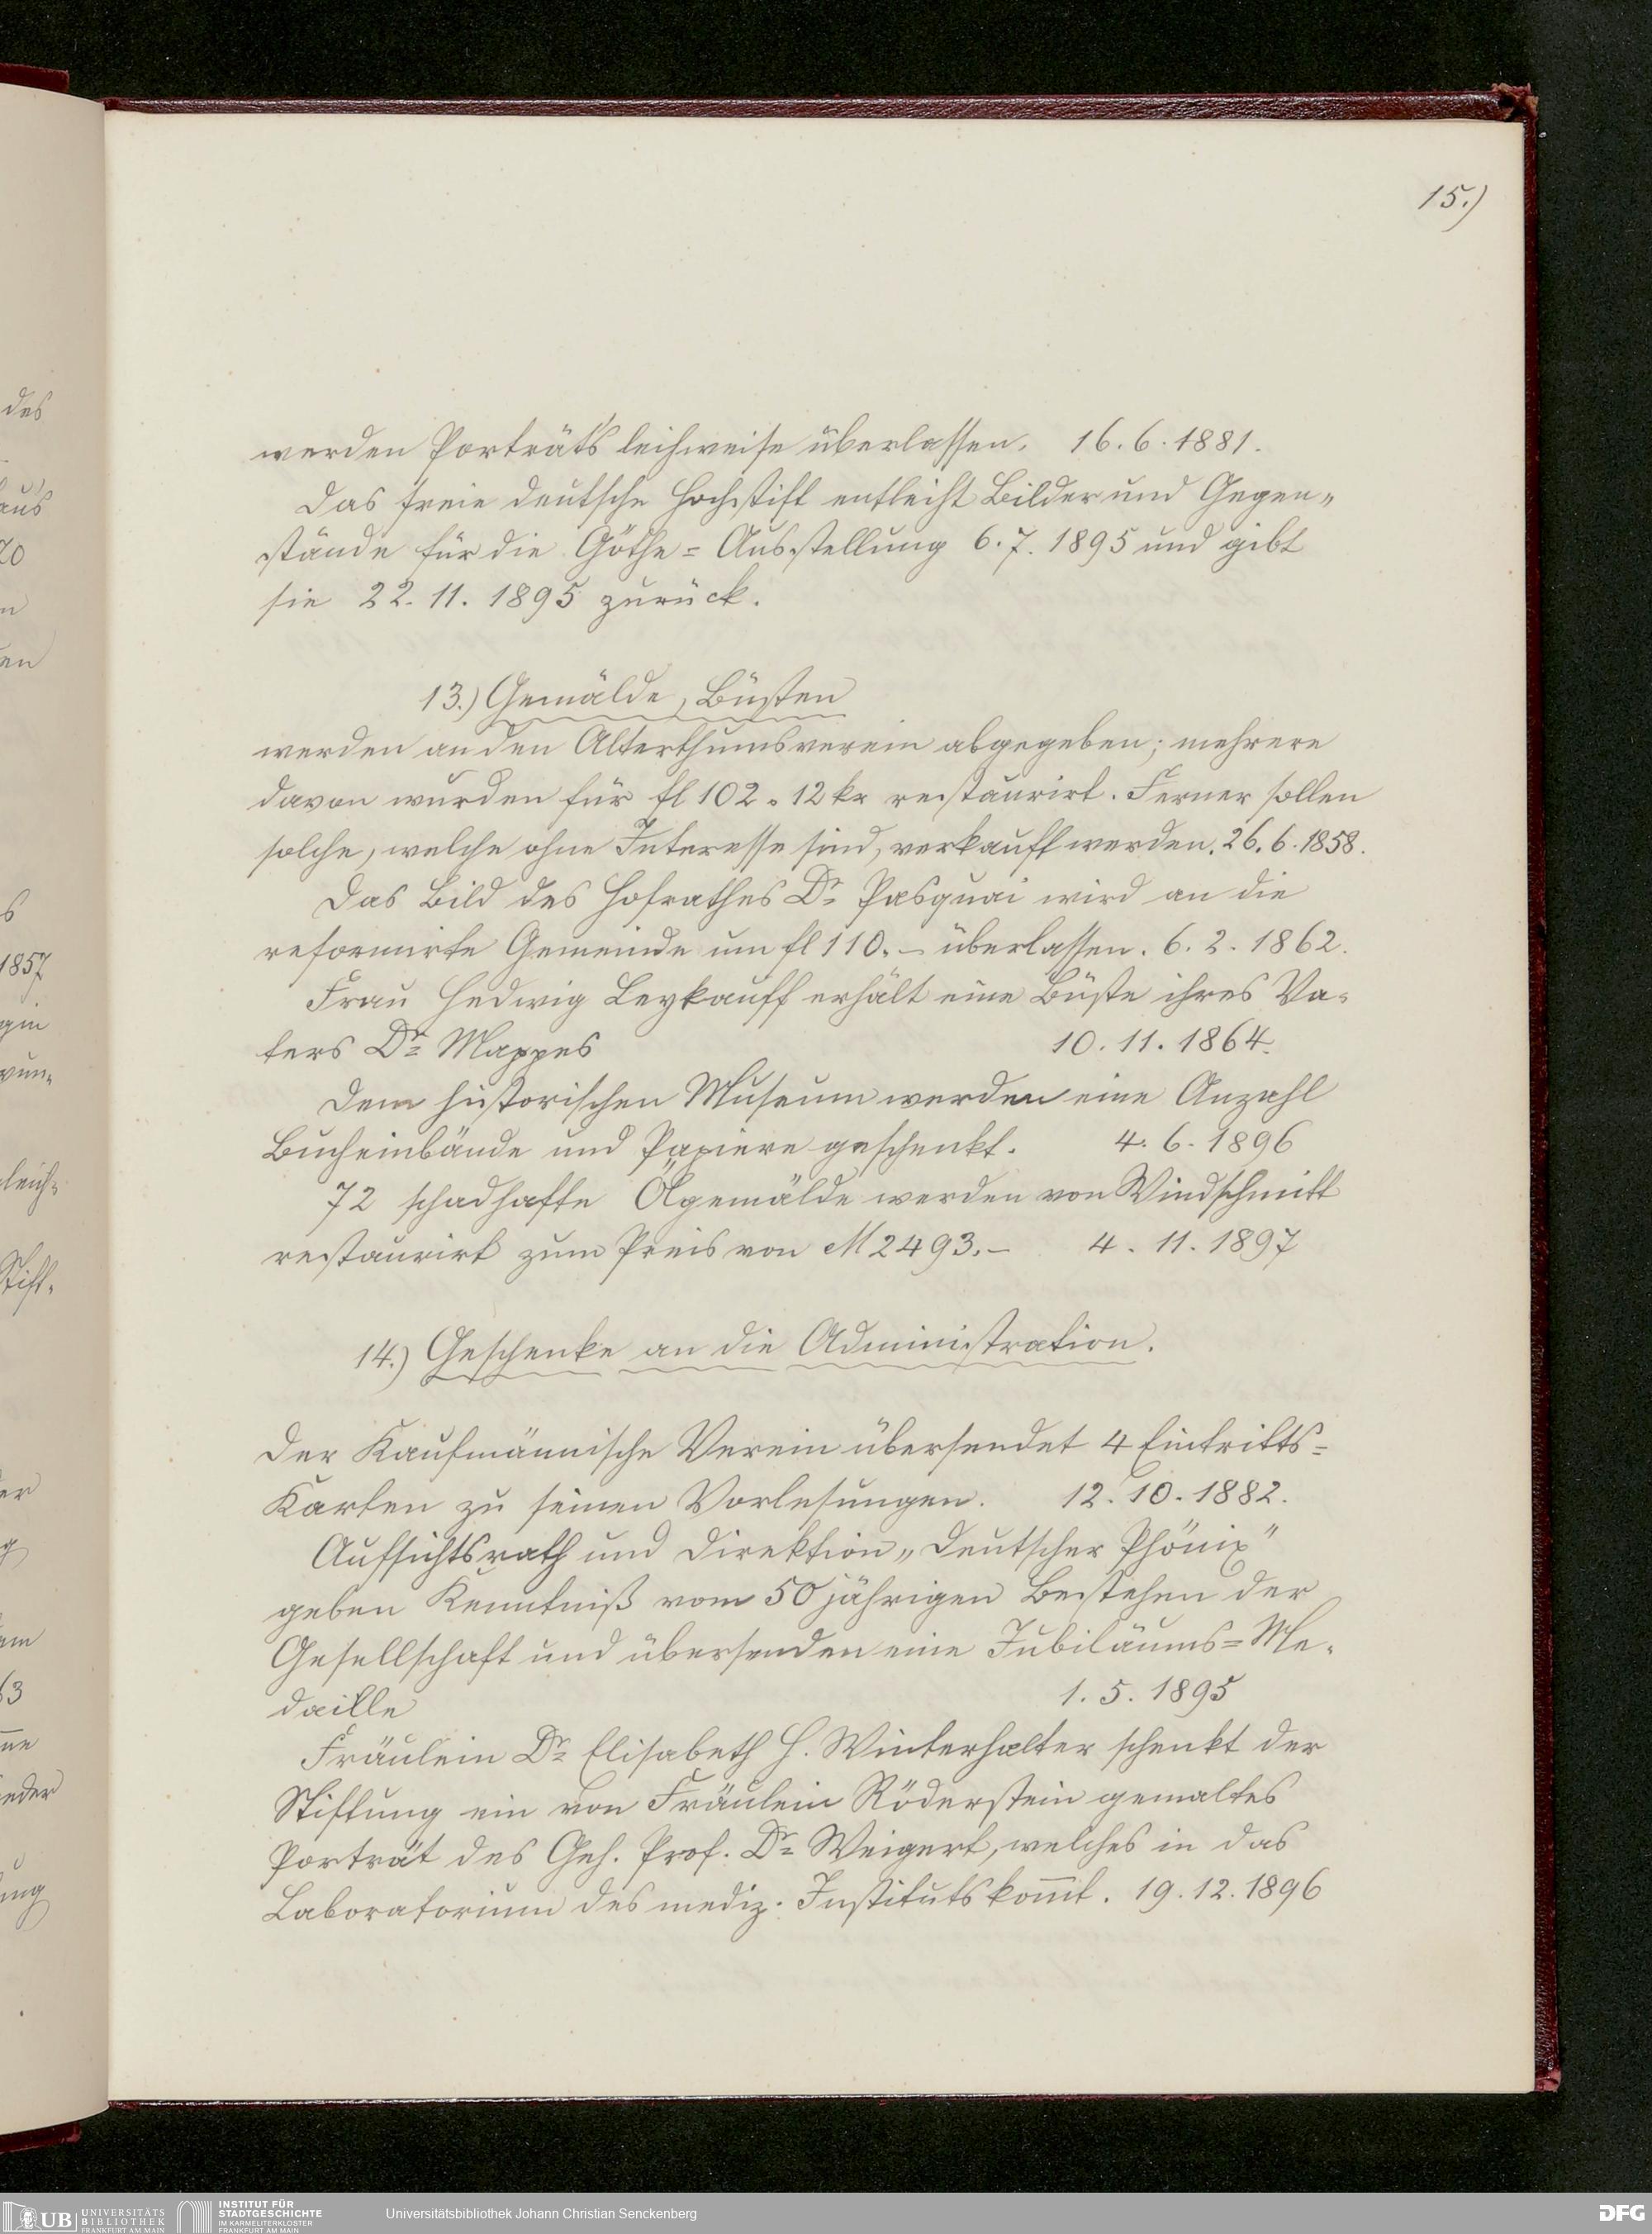 15.)
werden Porträts leihweise überlassen. 16. 6. 1881.
Das freie deutsche Hochstift entleiht Bilder und Gegen-
stände für die Göthe-Ausstellung 6. 7. 1895 und gibt
sie 22. 11. 1895 zurück.
13.) Gemälde, Büsten
werden an den Alterthumsverein abgegeben; mehrere
davon wurden für fl 102. 12 kr restaurirt. Ferner sollen
solche, welche ohne Interesse sind, verkauft werden. 26. 6. 1858.
Das Bild des Hofrathes Dr Pasquai wird an die
reformirte Gemeinde um fl 110.- überlassen. 6. 2. 1862.
Frau Hedwig Leykauff erhält eine Büste ihres Va-
ters Dr Mappes 10. 11. 1864.
Dem historischen Museum werden eine Anzahl
Bucheinbände und Papiere geschenkt. 4. 6. 1896
72 schadhafte Ölgemälde werden von Windschmitt
restaurirt zum Preis von M 2493.- 4. 11. 1897
14.) Geschenke an die Administration.
Der Kaufmännische Verein übersendet 4 Eintritts-
Karten zu seinen Vorlesungen. 12. 10. 1882.
Aufsichtsrath und Direktion „Deutscher Phönix"
geben Kenntniß vom 50jährigen Bestehen der
Gesellschaft und übersenden eine Jubiläums-Me-
daille 1. 5. 1895
Fräulein Dr Elisabeth H. Winterhalter schenkt der
Stiftung ein von Fräulein Röderstein gemaltes
Porträt des Geh. Prof. Dr Weigert, welches in das
Laboratorium des mediz. Instituts kom̅t. 19. 12. 1896
UB UNIVERSITÄTS BIBLIOTHEK FRANKFURT AM MAIN
INSTITUT FÜR STADTGESCHICHTE IM KARMELITERKLOSTER FRANKFURT AM MAIN
Universitätsbibliothek Johann Christian Senckenberg
DFG